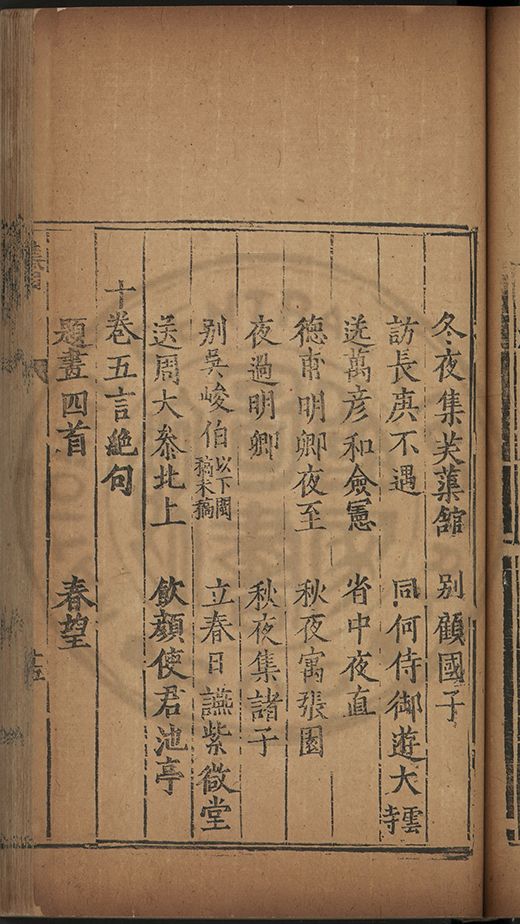 冬夜集芙蕖館　別顧國子
訪長庚不遇　同何侍御遊大雲寺
送萬彥和僉憲　省中夜直
德甫明卿夜至　秋夜寓張園
夜過明卿　秋夜集諸子
別吳峻伯以下閩稿未稿　立春日讌紫薇堂
送周大叅北上　飲顏使君池亭
十卷五言絕句
題畫四首　春望